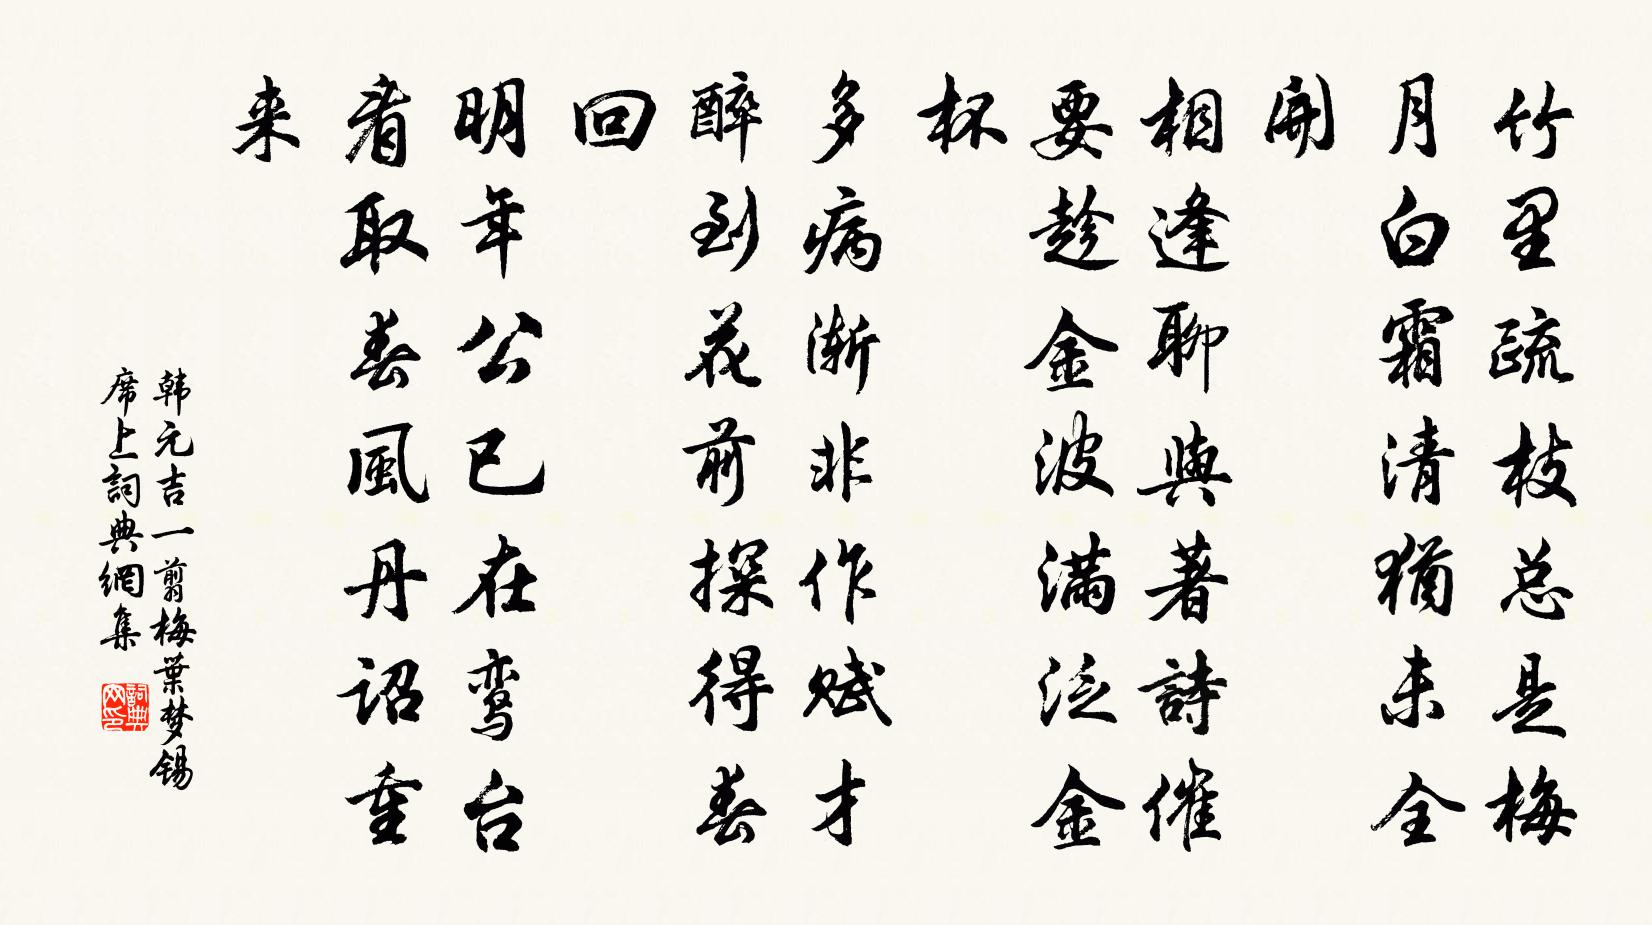 竹里疏枝总是梅
月白霜清猶未全
開
相逢聊與著詩催
要趁金波滿泛金
杯
多病渐非作赋才
醉到花前探得春
回
明年公已在鸾台
看取春風丹诏重
来
韩元吉一剪梅葉梦锡
席上詞典網集
詞典
网印